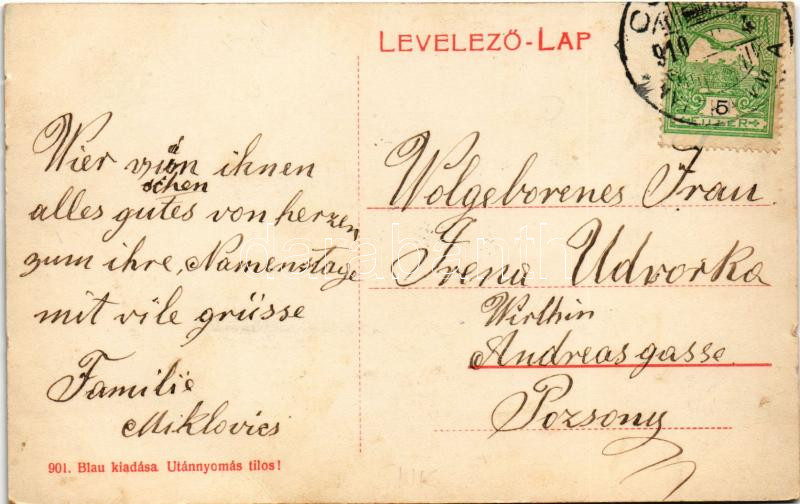 LEVELEZŐ-LAP
910
5
FILLÉR
Wier ihnen
schen
alles gutes von herzen
zum ihre, Namenstage
mit vile grüsse
Familie
Miklovics
Wolgeborenes Frau
Irena Udvorka
Wirthin
Andreasgasse
Pozsony
901. Blau kiadása Utánnyomás tilos!